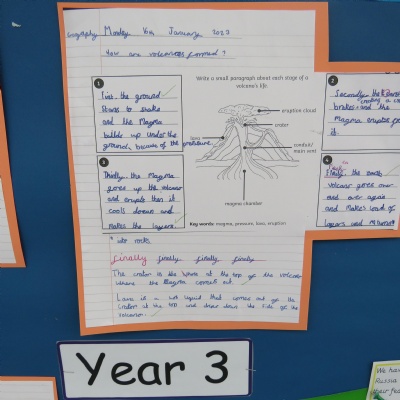 Geography Monday January 2023
How are volcanoes formed?
Write a small paragraph about each stage of a
volcano's life.
1
First the ground
Starts to shake
and the Magma
builds up under the
ground because of the pressure
2
Secondly the
creating a
brakes and the
Magma erupts
it
3
Thirdly, the Magma
goes up the volcano
and erupts then it
cools down and
makes the layers
4
the
volcano goes over
and over again
and makes load of
layers and
eruption cloud
crater
lava
conduit/
main vent
magma chamber
Key words: magma, pressure, lava, eruption
rocks
Finally finally finally finaly
The crater is the hole at the top of the volcano
where the Magma comes out.
Lava is a hot liquid that comes out of the
crater at the top and down the side of the
volcano.
Year 3
We have
Russia